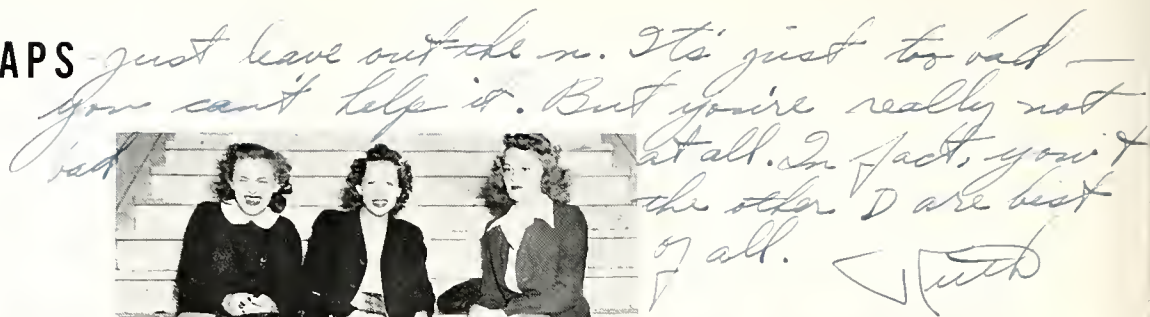 APS Just leave out the n. It's just too bad —
you can't help it. But you're really not
bad at all. In fact, you &
the other D are best
of all. Ruth